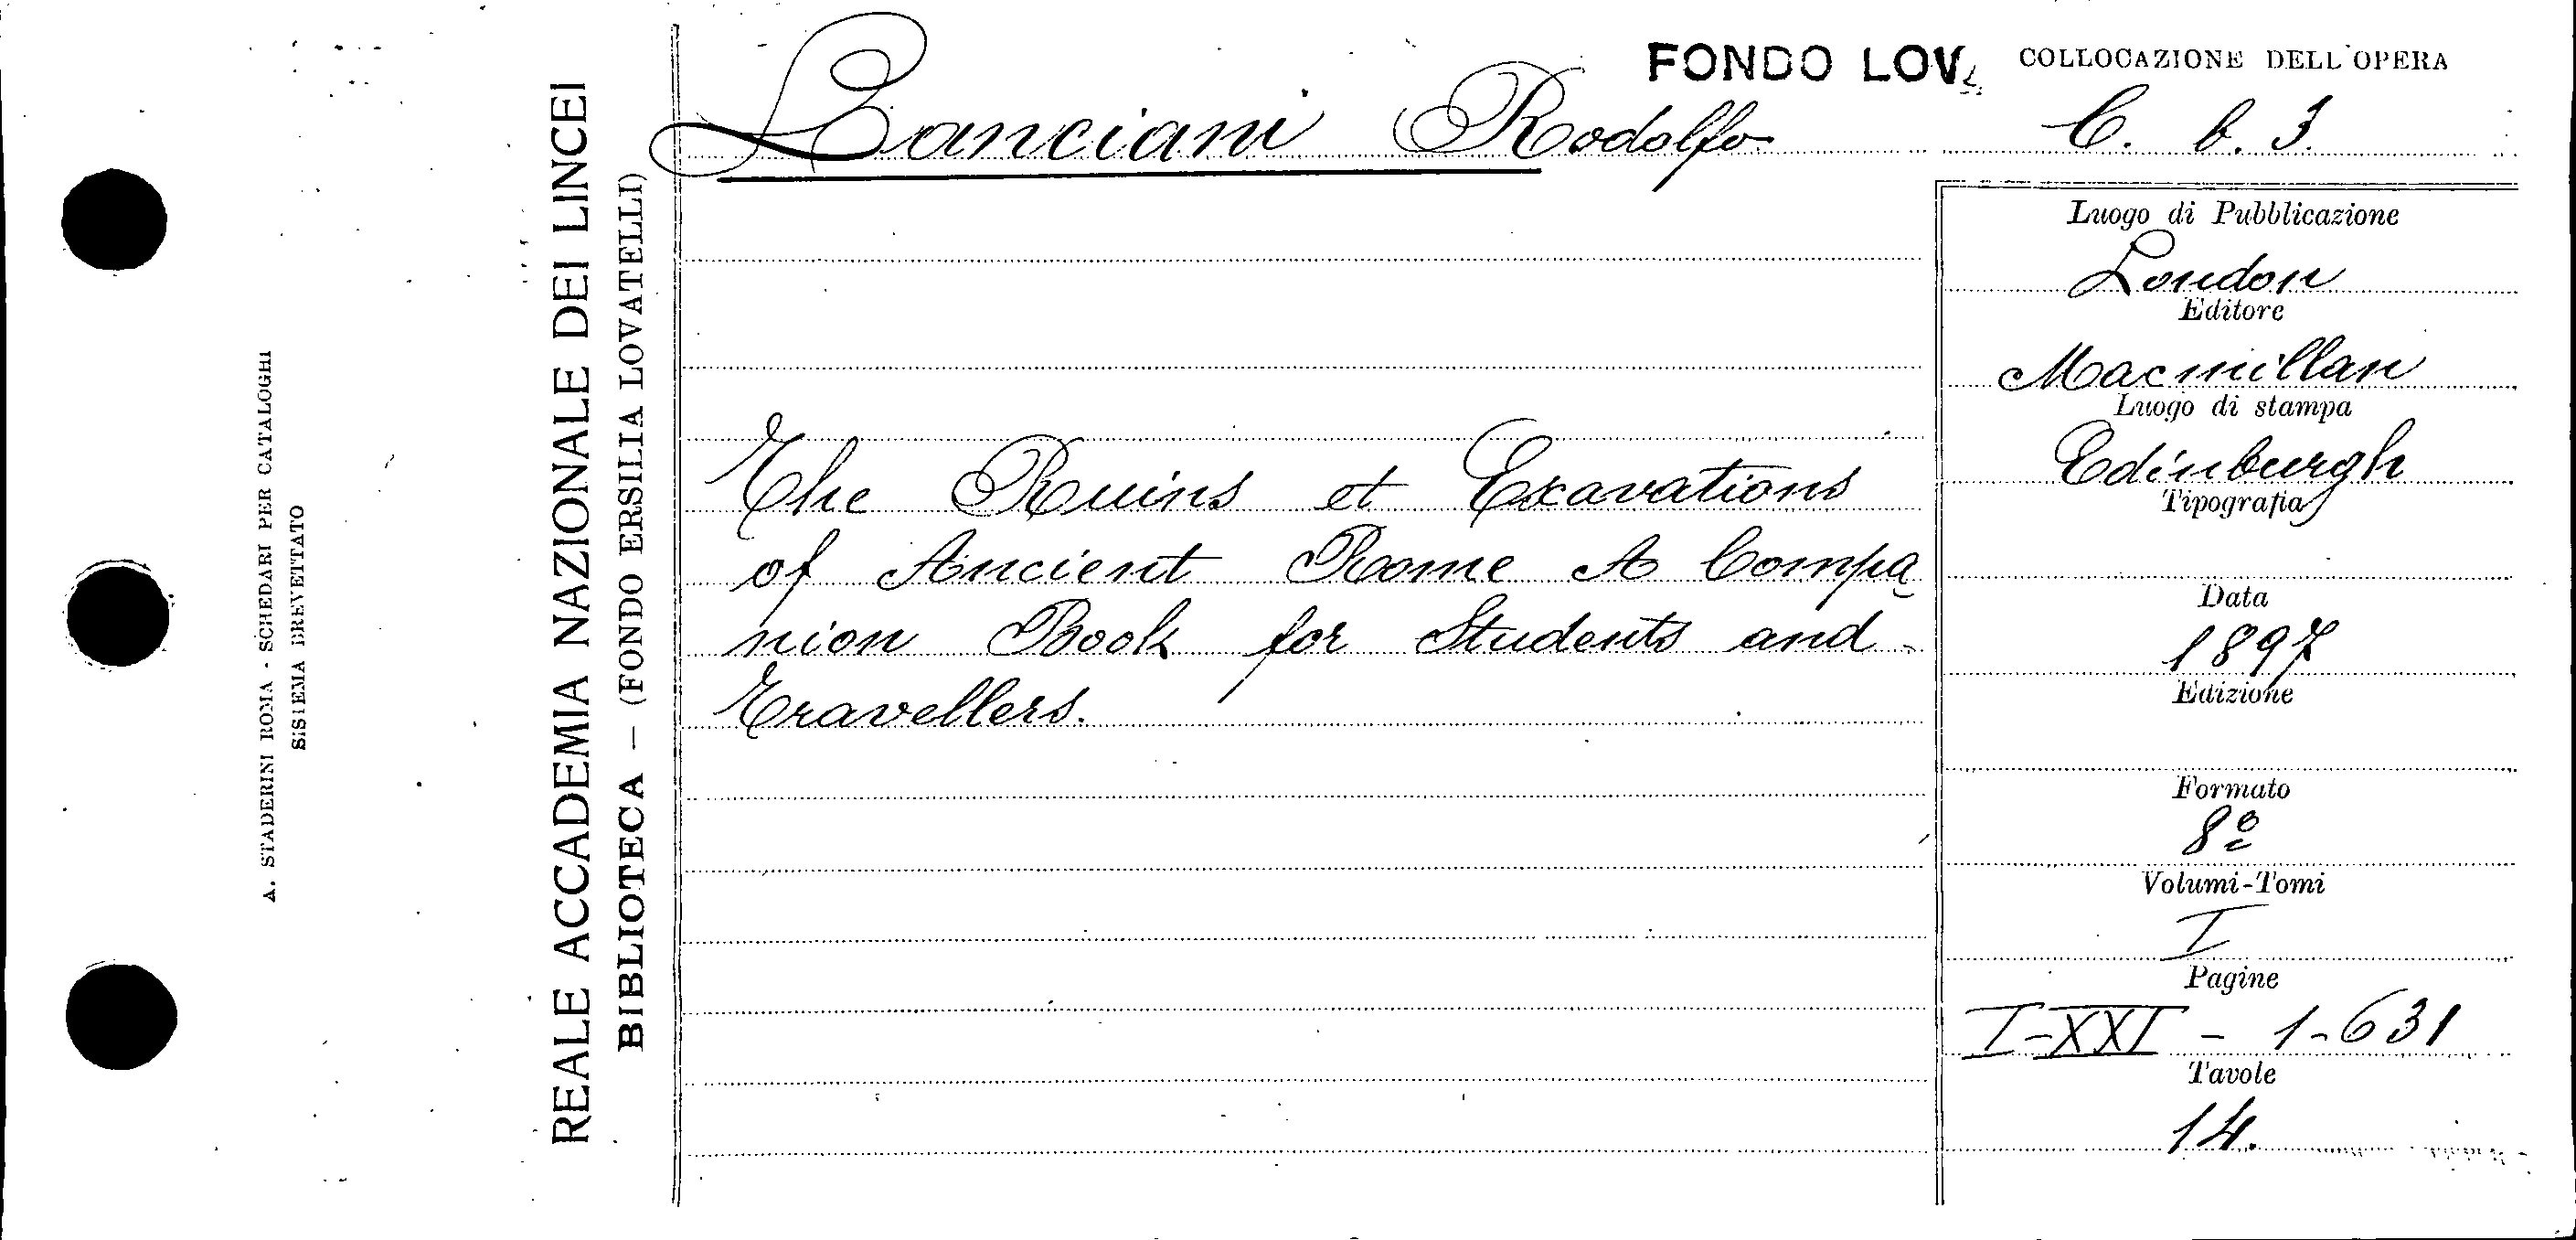 A. STADERINI ROMA - SCHEDARI PER CATALOGHI
SISTEMA BREVETTATO
REALE ACCADEMIA NAZIONALE DEI LINCEI
BIBLIOTECA — (FONDO ERSILIA LOVATELLI)
Lanciani Rodolfo
FONDO LOV.
The Ruins et Excavations
of Ancient Rome A Compa
nion Book for Students and
Travellers.
COLLOCAZIONE DELL'OPERA
C. b. 3.
Luogo di Pubblicazione
London
Editore
Macmillan
Luogo di stampa
Edinburgh
Tipografia
Data
1897
Edizione
Formato
8º
Volumi-Tomi
I
Pagine
I-XXI - 1-631
Tavole
14.